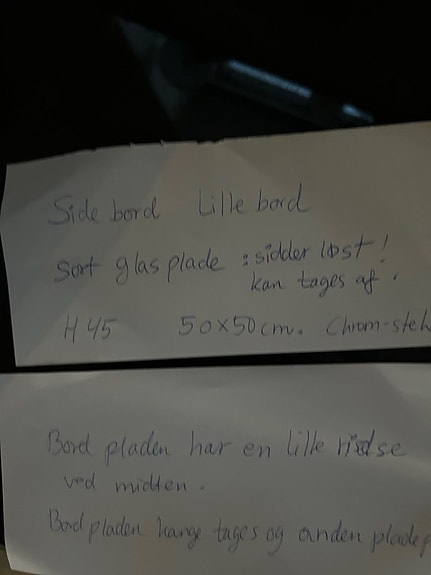 Side bord Lille bord
Sort glas plade : sidder løst!
kan tages af.
H 45 50x50 cm. Chrom-stel
Bord pladen har en lille ridse
ved midten.
Bord pladen kange tages og anden plade